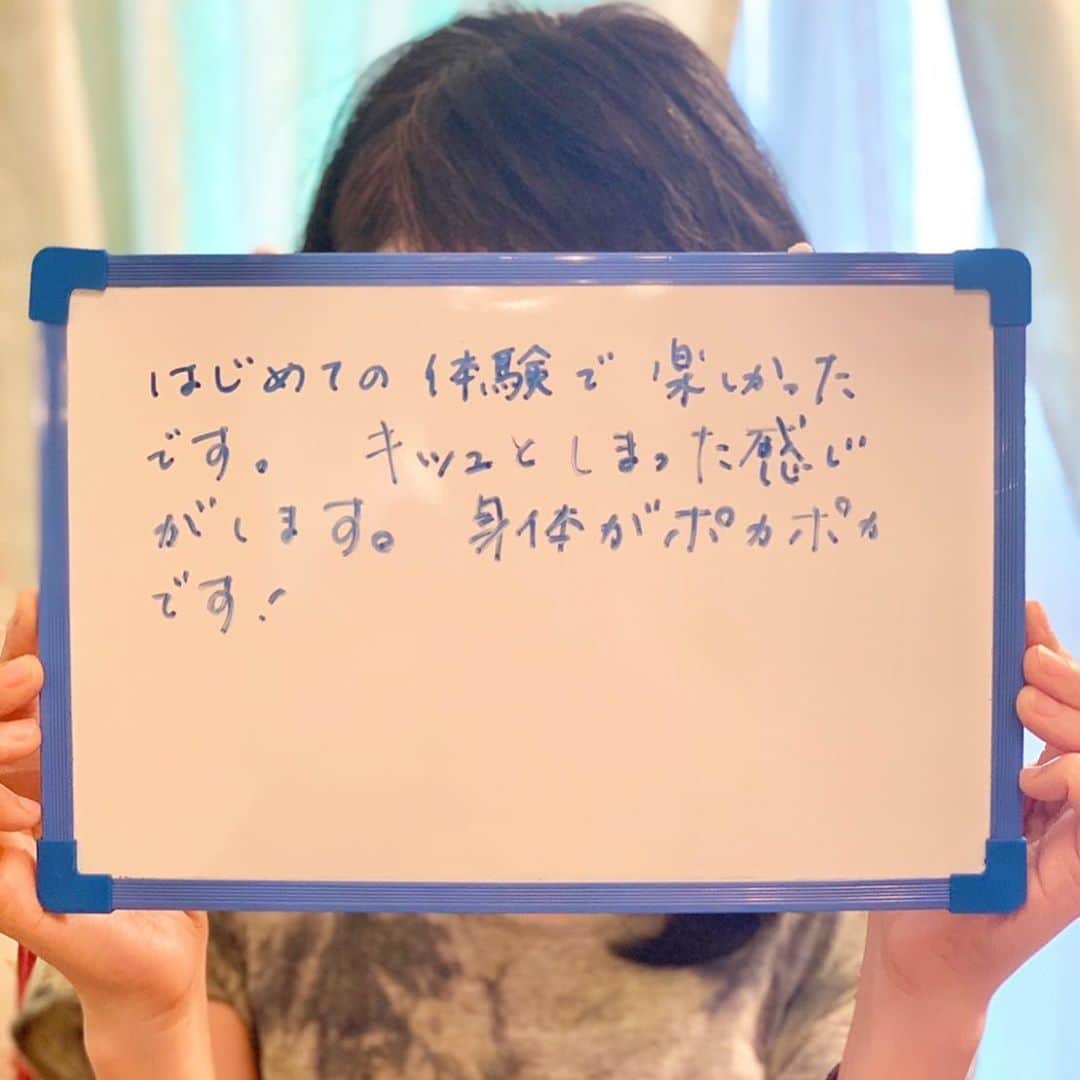 はじめての体験で楽しかった
です。 キツュとしまった感じ
がします。 身体がポカポカ
です!